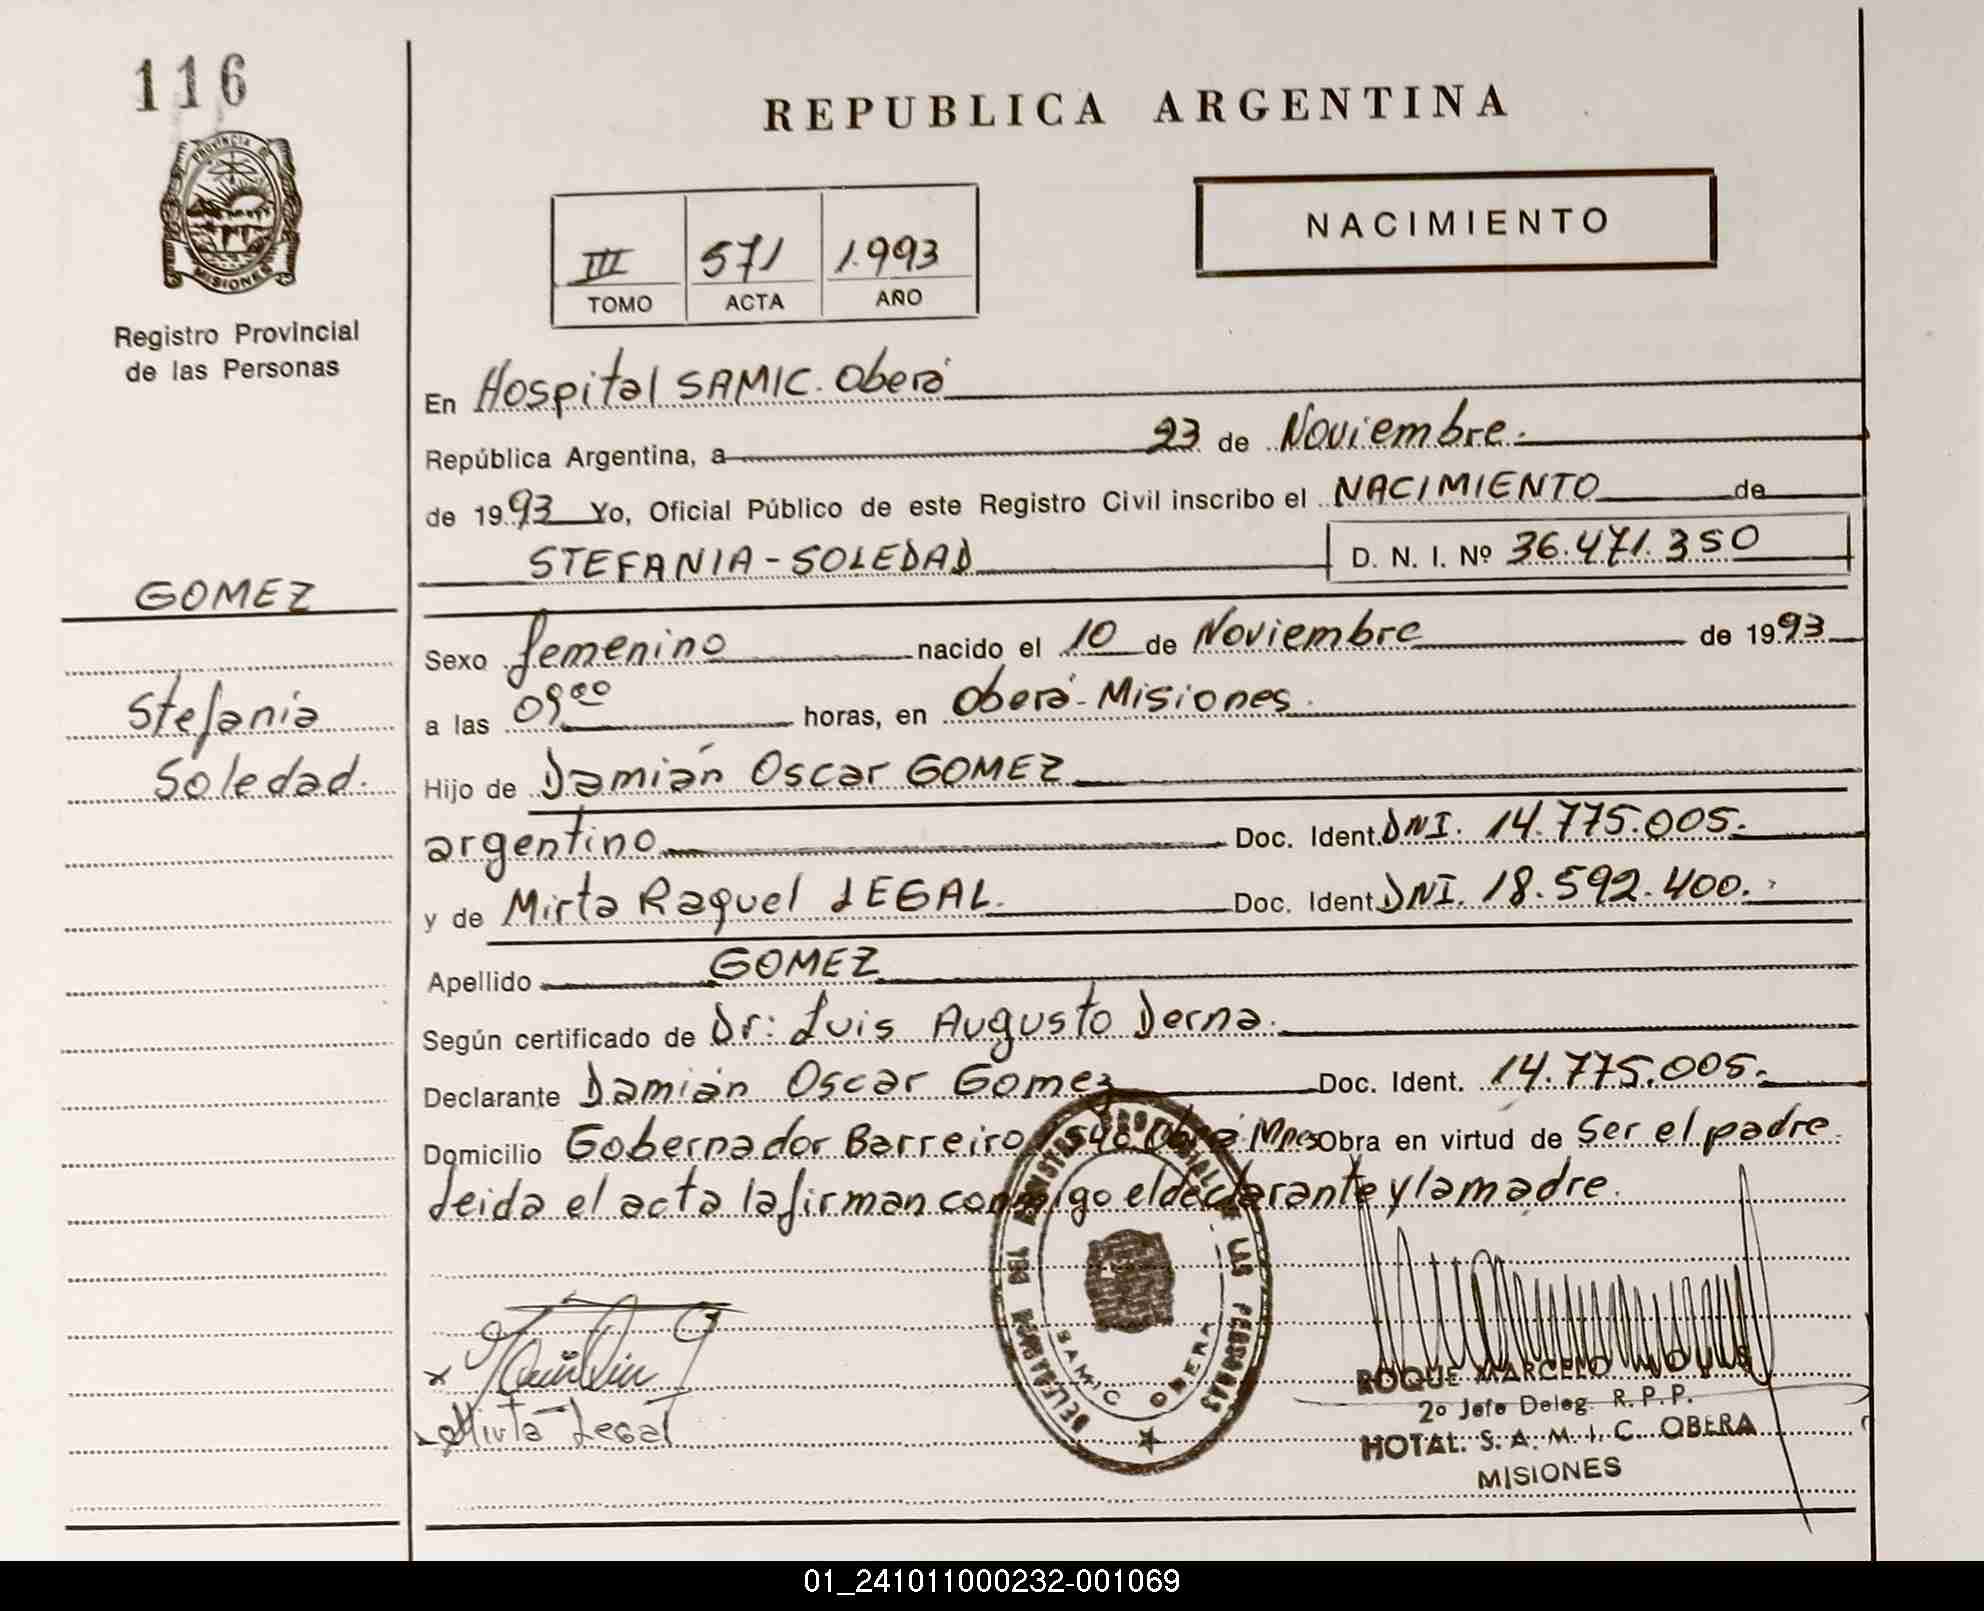 116
PROVINCIA DE
MISIONES
Registro Provincial
de las Personas
GOMEZ
Stefania
Soledad.
REPUBLICA ARGENTINA
III 571 1.993
TOMO ACTA AÑO
NACIMIENTO
En Hospital SAMIC. Oberá
República Argentina, a 23 de Noviembre.
de 1993 Yo, Oficial Público de este Registro Civil inscribo el NACIMIENTO de
STEFANIA-SOLEDAD D. N. I. Nº 36.471.350
Sexo femenino nacido el 10 de Noviembre de 1993
a las 09⁰⁰ horas, en Oberá-Misiones.
Hijo de Damián Oscar GOMEZ
argentino Doc. Ident. DNI. 14.775.005.
y de Mirta Raquel LEGAL. Doc. Ident DNI. 18.592.400.
Apellido GOMEZ
Según certificado de Dr: Luis Augusto Derna.
Declarante Damián Oscar Gomez Doc. Ident. 14.775.005.
Domicilio Gobernador Barreiro Mnes Obra en virtud de Ser el padre.
Leida el acta la firman conmigo el declarante y la madre.
Mirta Legal
SAMIC OBERA
ROQUE MARCELO
2º Jefe Deleg. R. P. P.
HOTAL. S. A. M. I. C. OBERA
MISIONES
01_241011000232-001069